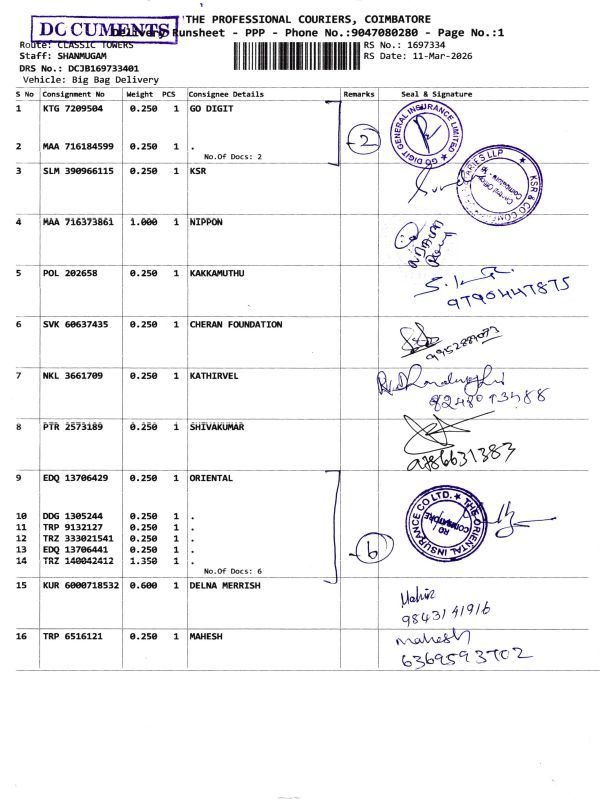 THE PROFESSIONAL COURIERS, COIMBATORE
DOCUMENTS
Delivery Runsheet - PPP - Phone No.:9047080280 - Page No.:1
Route: CLASSIC TOWERS
RS No.: 1697334
Staff: SHANMUGAM
RS Date: 11-Mar-2026
DRS No.: DCJB169733401
Vehicle: Big Bag Delivery
S No Consignment No Weight PCS Consignee Details Remarks Seal & Signature
1 KTG 7209504 0.250 1 GO DIGIT
GO DIGIT GENERAL INSURANCE LIMITED
-2
2 MAA 716184599 0.250 1 .
No.Of Docs: 2
3 SLM 390966115 0.250 1 KSR
KSR & CO COMPANY SECRETARIES LLP
4 MAA 716373861 1.000 1 NIPPON
5 POL 202658 0.250 1 KAKKAMUTHU
9790447875
6 SVK 60637435 0.250 1 CHERAN FOUNDATION
7 NKL 3661709 0.250 1 KATHIRVEL
8248013488
8 PTR 2573189 0.250 1 SHIVAKUMAR
9786631383
9 EDQ 13706429 0.250 1 ORIENTAL
THE ORIENTAL INSURANCE CO LTD.
RO
COIMBATORE
10 DDG 1305244 0.250 1 .
11 TRP 9132127 0.250 1 .
12 TRZ 333021541 0.250 1 .
13 EDQ 13706441 0.250 1 .
14 TRZ 140042412 1.350 1 .
-6
No.Of Docs: 6
15 KUR 6000718532 0.600 1 DELNA MERRISH
9843141916
16 TRP 6516121 0.250 1 MAHESH
Mahesh
6369593702